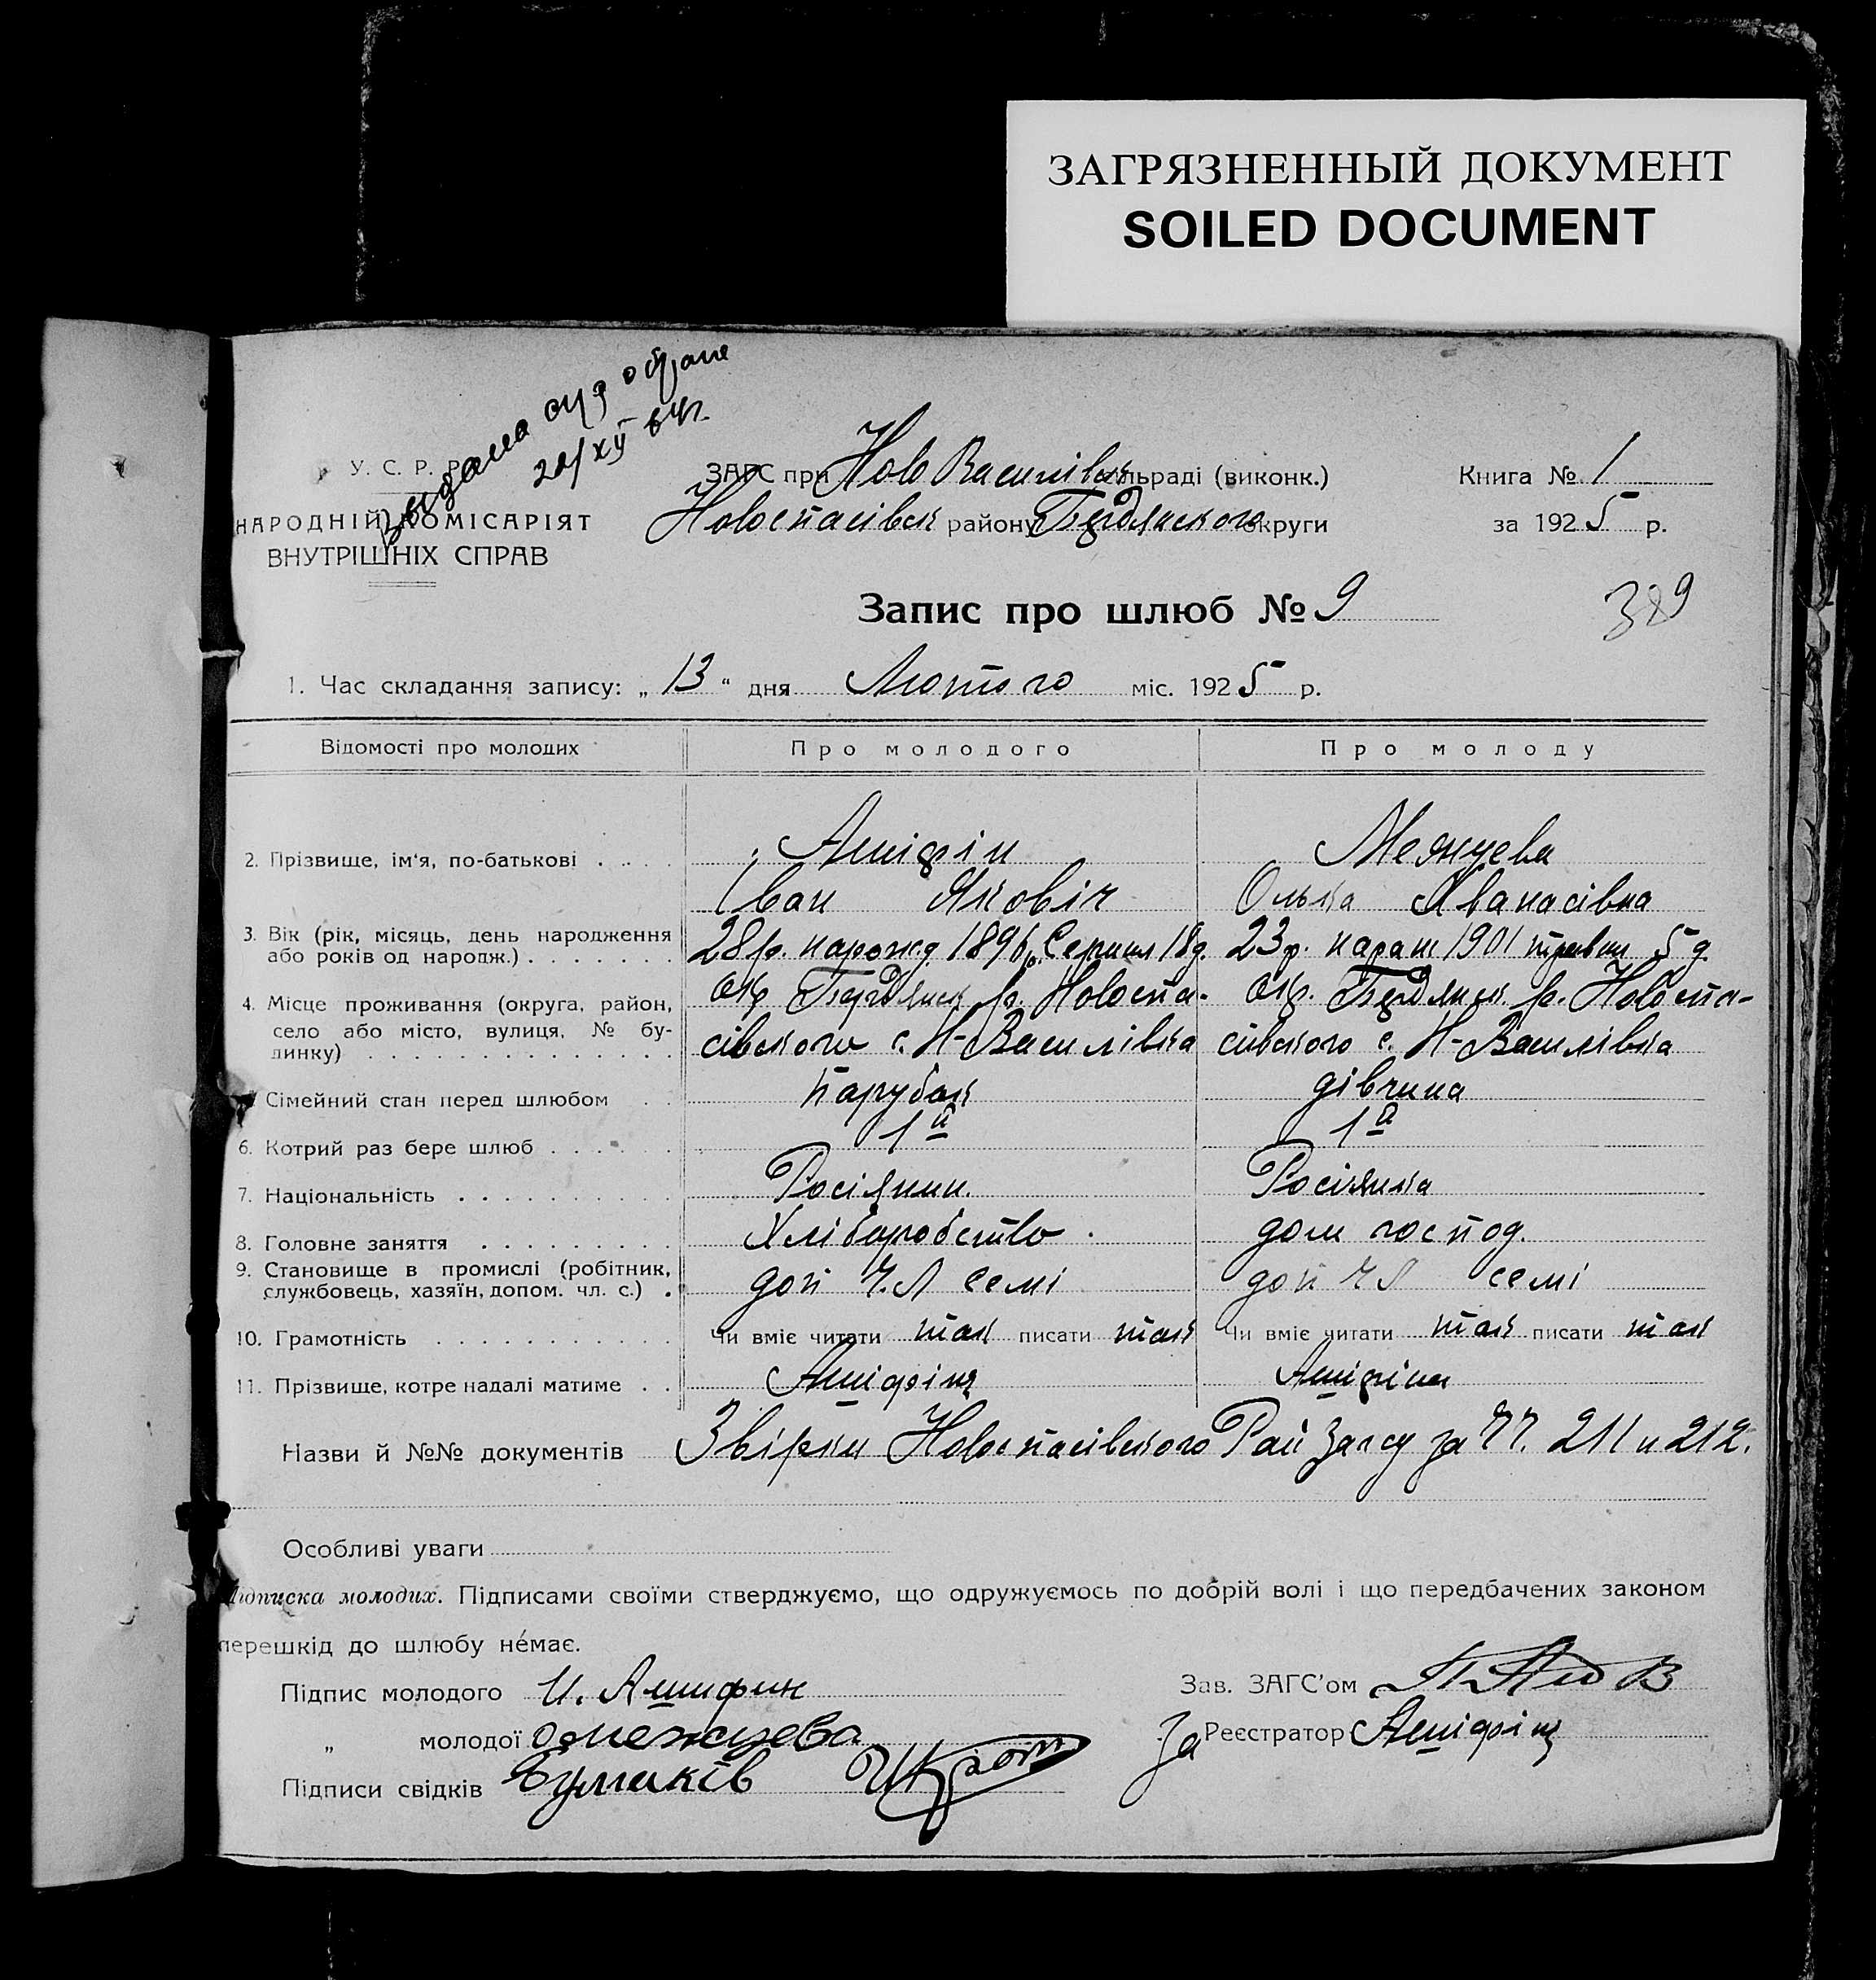 ЗАГРЯЗНЕННЫЙ ДОКУМЕНТ
SOILED DOCUMENT
У. С. Р. Р.
НАРОДНІЙ КОМІСАРІЯТ
ВНУТРІШНІХ СПРАВ
ЗАГС при Ново Василівск сільраді (виконк.)
Новоспасівск району Бердянского округи
Книга № 1
за 1925 р.
Запис про шлюб № 9
389
1. Час складання запису: „ 13 “ дня Лютого міс. 1925 р.
Відомості про молодих Про молодого Про молоду
2. Прізвище, ім'я, по-батькові Ашифін Межуева
Іван Яковіч Ольга Аванасівна
3. Вік (рік, місяць, день народження або років од народж.) 28 р. нарожд 1896 р. Серпня 18 д. 23 р. нарож 1901 травня 5 д
4. Місце проживання (округа, район, село або місто, вулиця, № будинку) Окр Бердянск р. Новоспасівского с. Н-Василівка Окр. Бердянск р. Новоспасівского с. Н-Василівка
Сімейний стан перед шлюбом парубок дівчина
6. Котрий раз бере шлюб 1й 1й
7. Національність Росіянин. Росіянка
8. Головне заняття Хліборобство дом господ.
9. Становище в промислі (робітник, службовець, хазяїн, допом. чл. с.) доп Ч.Л семі доп ЧЛ семі
10. Грамотність Чи вміє читати так писати так Чи вміє читати так писати так
11. Прізвище, котре надалі матиме Ашифін Ашифіна
Назви й №№ документів Звірки Новоспасівского Рай Загсу за 211 и 212.
Особливі уваги
Підписка молодих. Підписами своїми стверджуємо, що одружуємось по добрій волі і що передбачених законом
перешкід до шлюбу немає.
Підпис молодого И. Ашифин
„ молодої Омежуева
Підписи свідків
Зав. ЗАГС'ом
За Реєстратор Ашифін